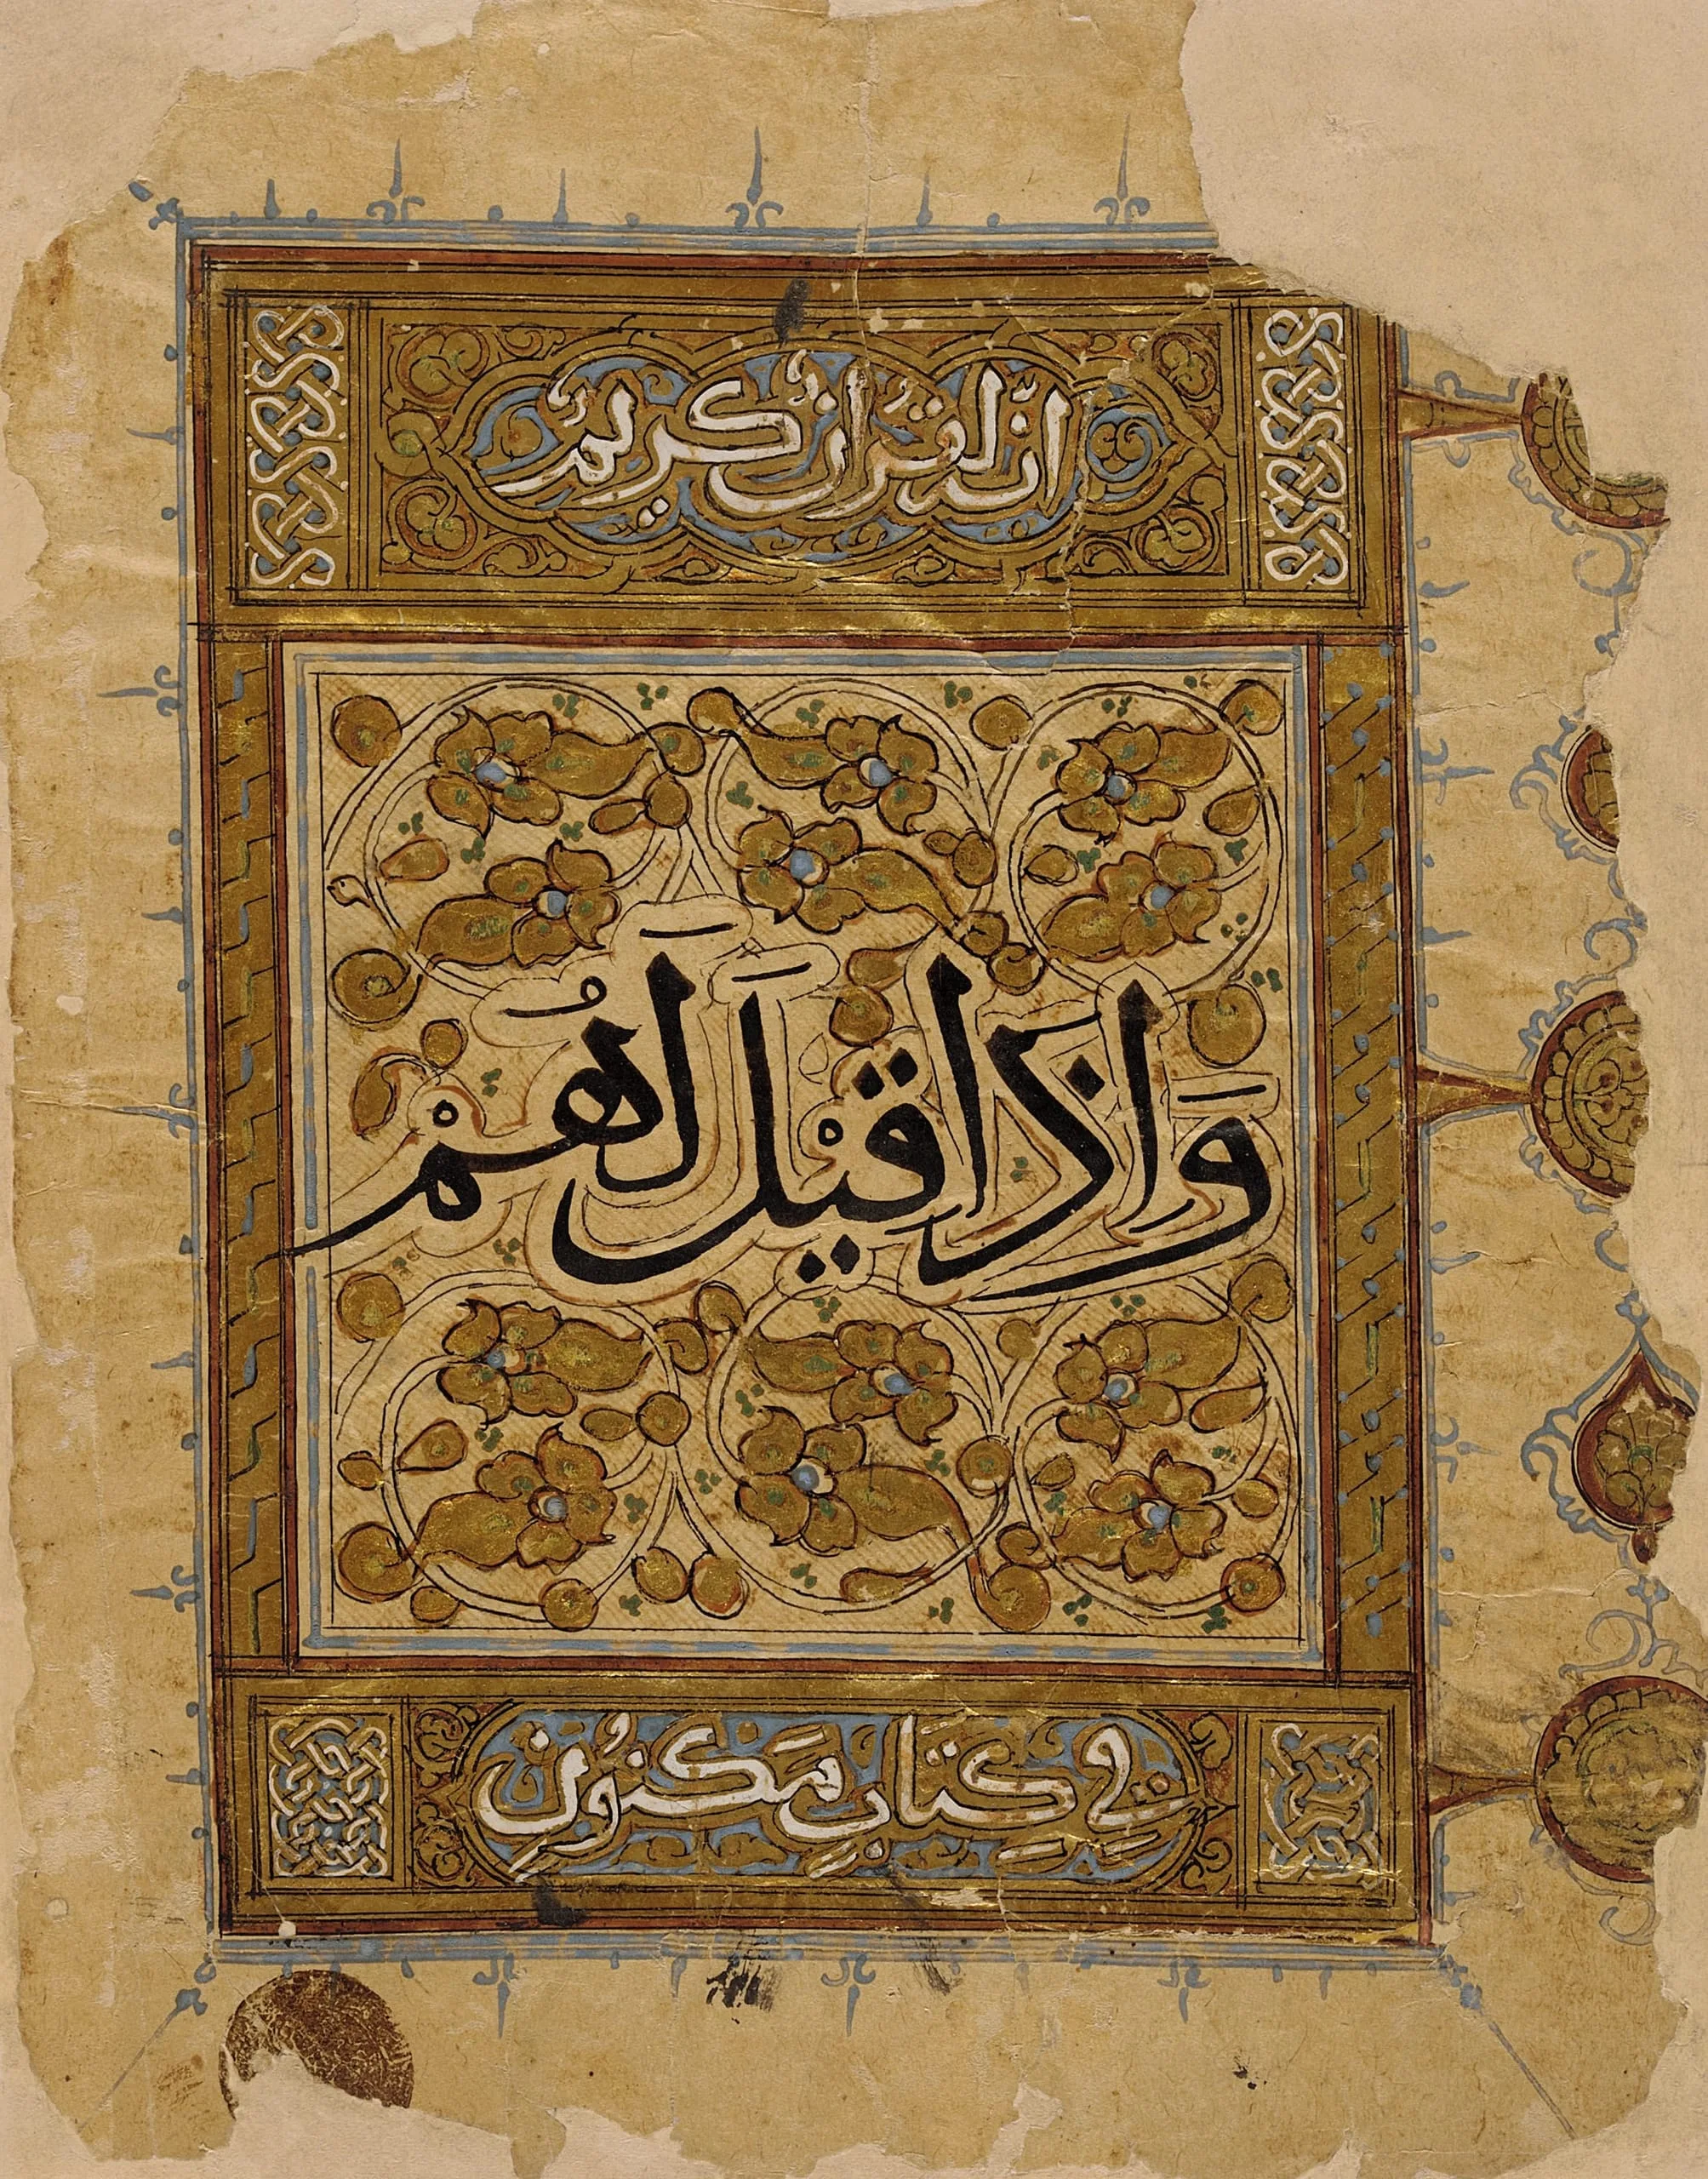 انّه لقُرانٌ كريمٌ
وَاِذَا قِيْلَ لَهُمْ
فِي كِتَابٍ مَكنُونٍ